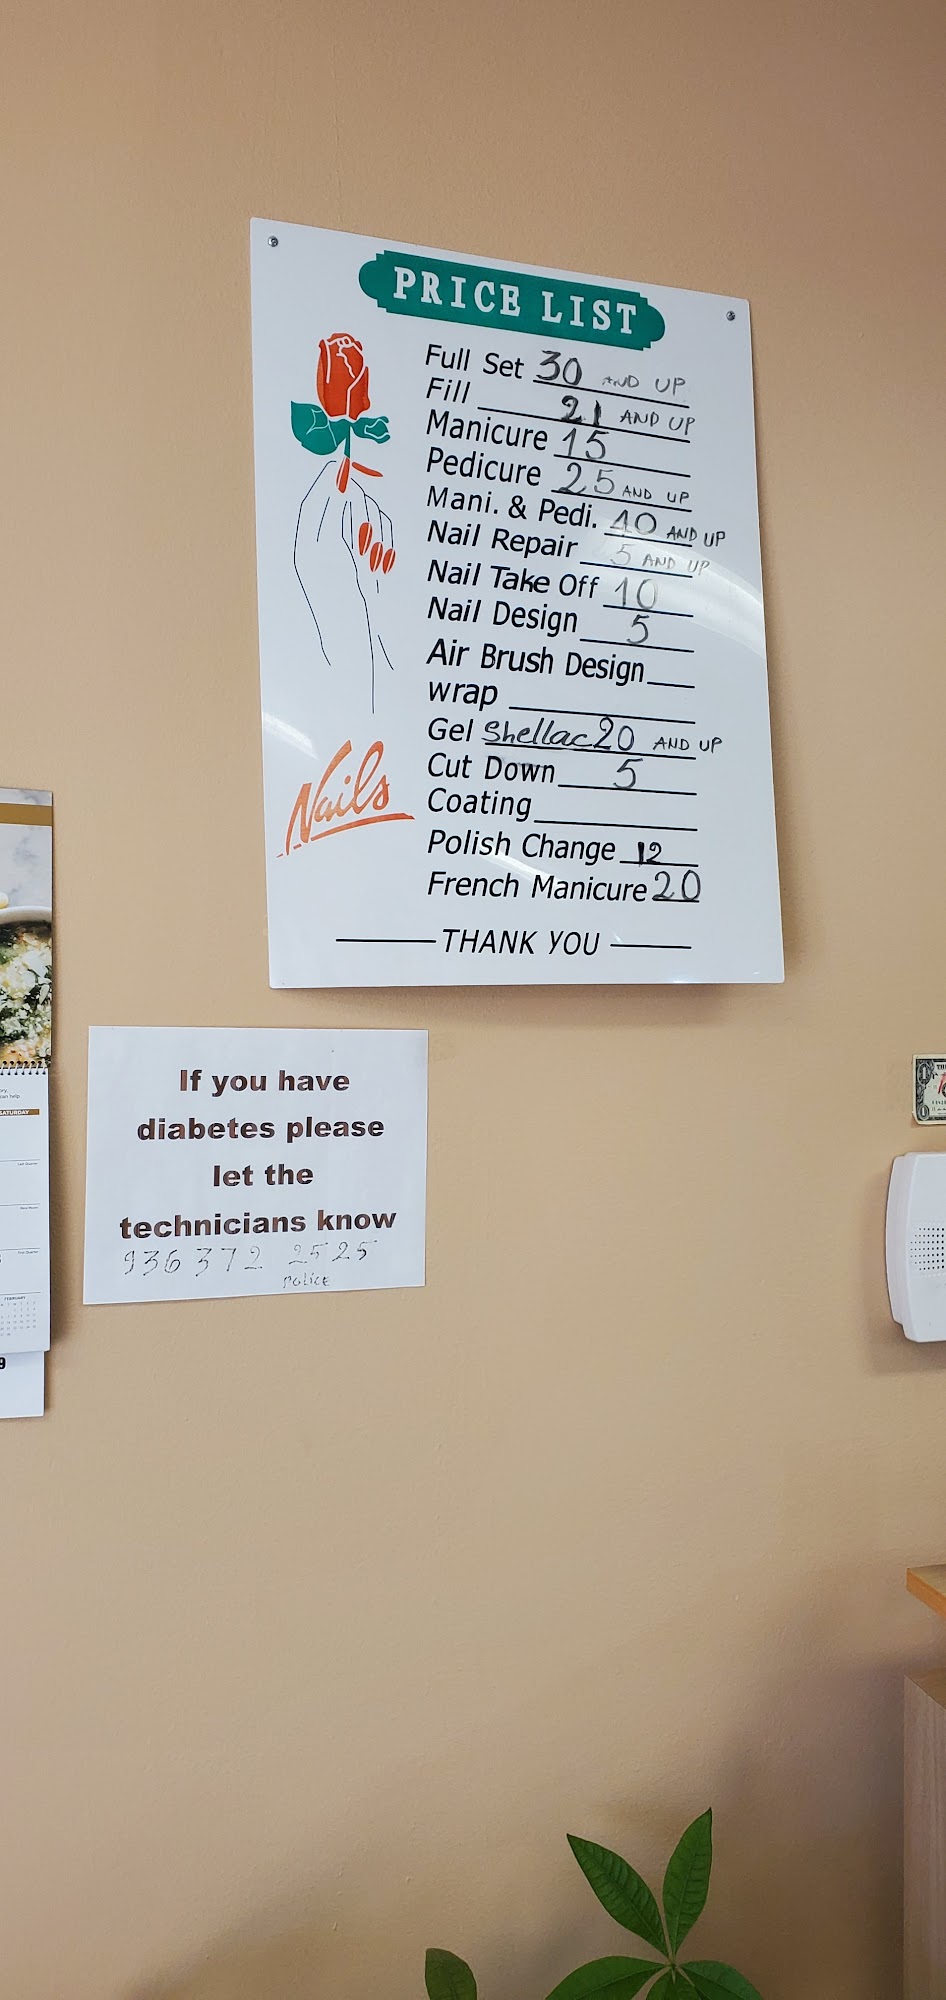 PRICE LIST
Full Set 30 AND UP
Fill 21 AND UP
Manicure 15
Pedicure 25 AND UP
Mani. & Pedi. 40 AND UP
Nail Repair 5 AND UP
Nail Take Off 10
Nail Design 5
Air Brush Design
wrap
Gel Shellac 20 AND UP
Cut Down 5
Coating
Polish Change 12
French Manicure 20
THANK YOU
Nails
If you have
diabetes please
let the
technicians know
936 372 2525
POLICE
SATURDAY
FEBRUARY
9
1